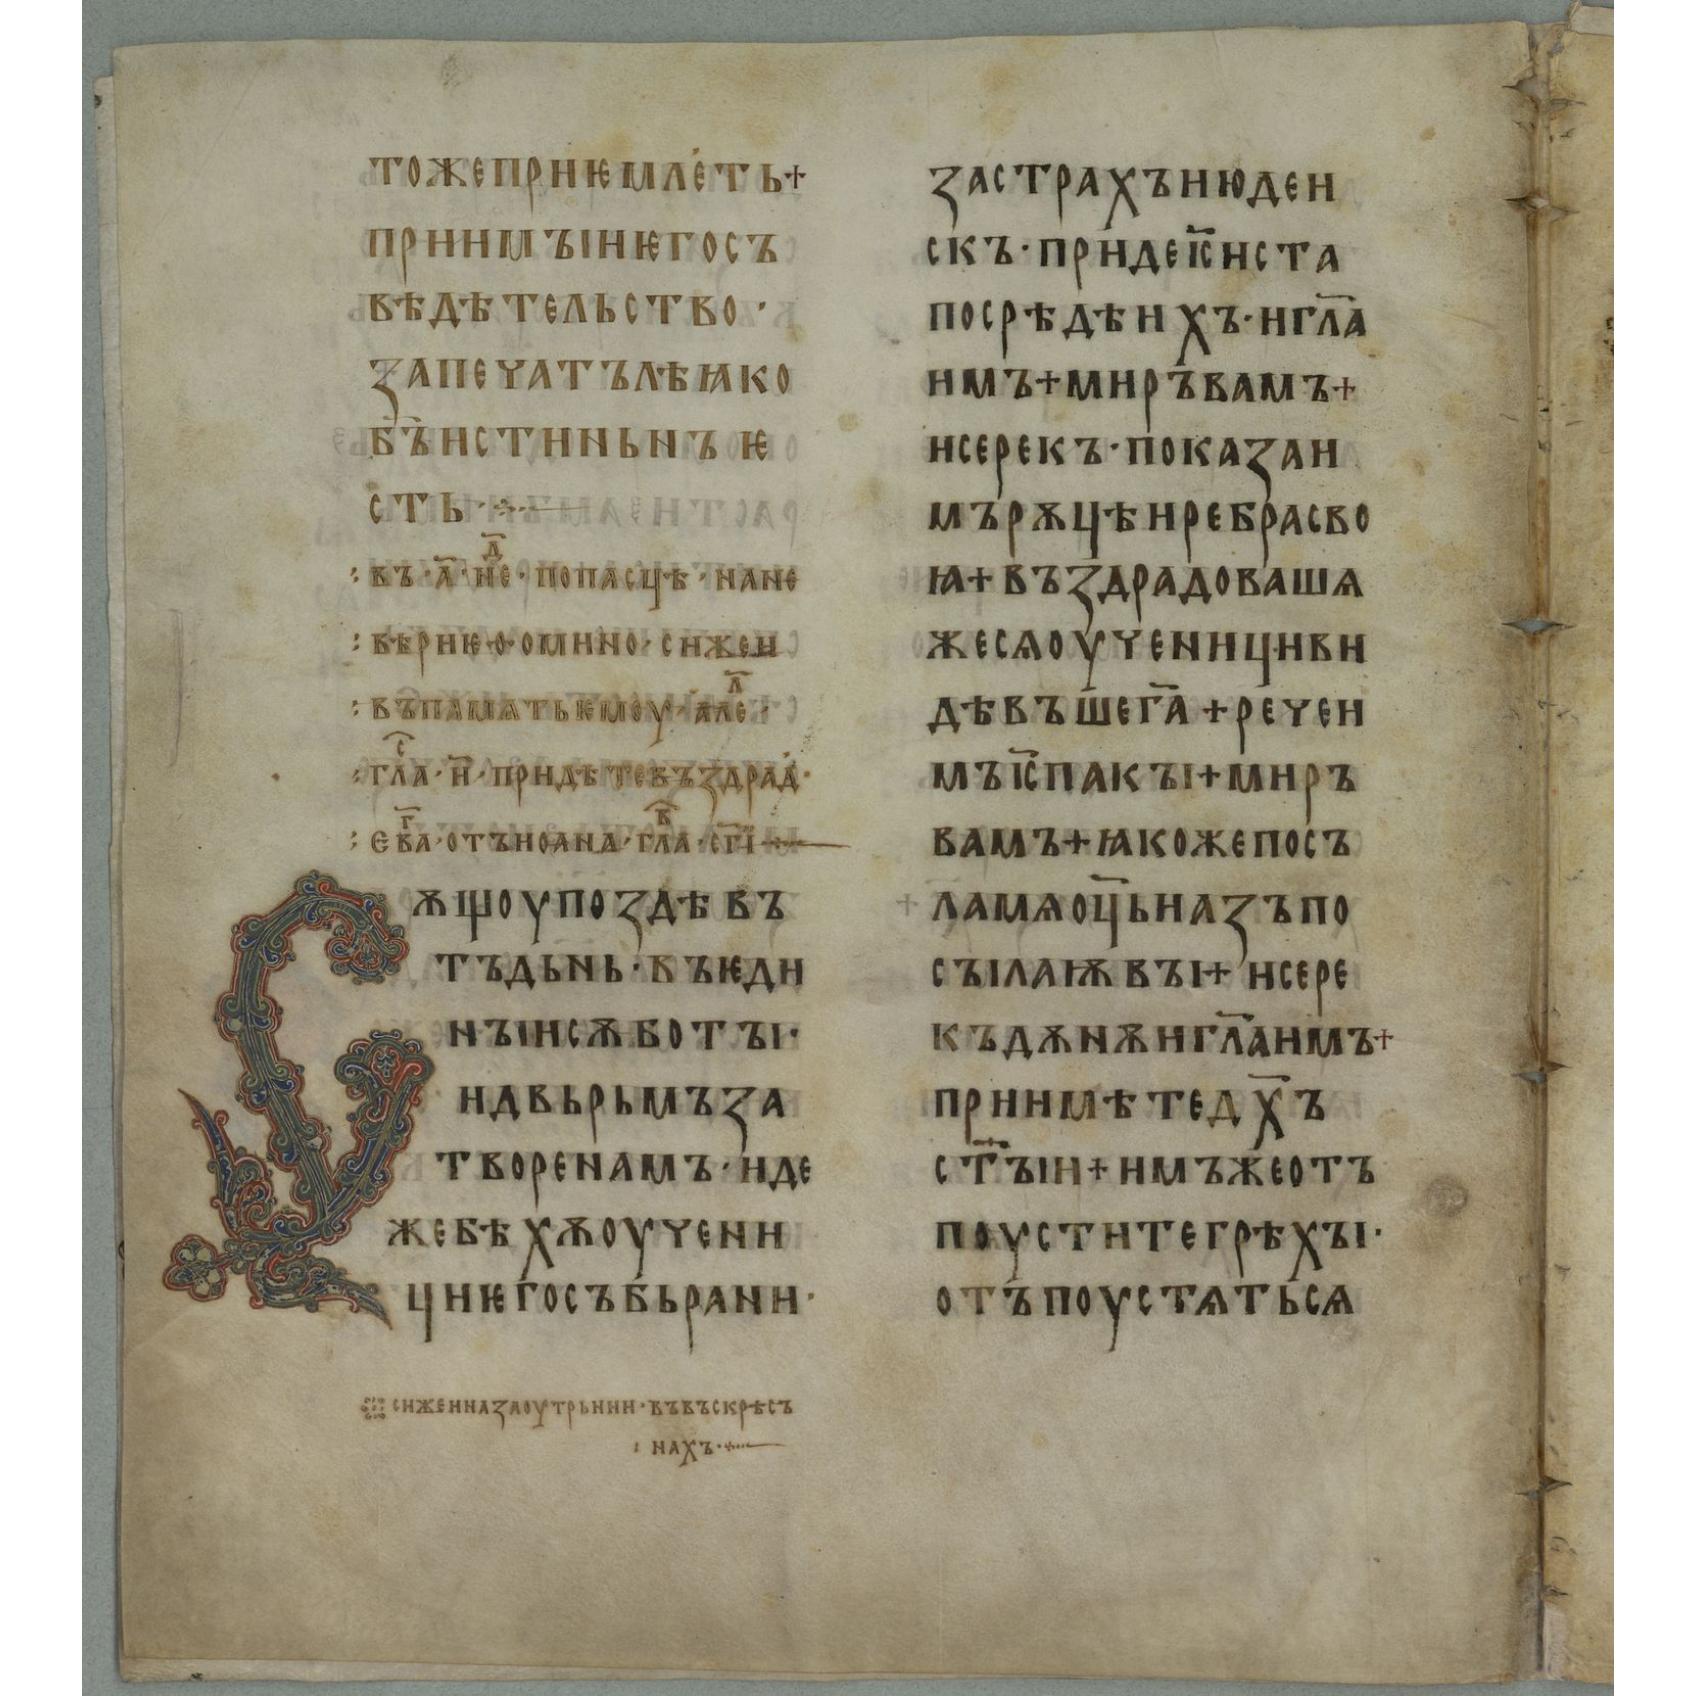 тожепринѥмлеть+
приимꙑиѥгосъ
вѣдѣтельство·
запечатълѣꙗко
бъ҃истиньнъѥ
сть·
въ·а҃·не҃д·попасцѣ·нане
вѣриѥ·ѳ·омино·сижеи
въпамѧтьѥмоу·а҃ле·л
гла҃с·и҃·придѣтевъздрад·
ев҃г҃а·отъиоана·гл҃ва·ѕ҃г҃і
ѫщоупоздѣвъ
тъдьнь·въѥди
нꙑисѫботꙑ·
идвьрьмъза
творенамъ·иде
жебѣхѫоучени
циѥгосъбьрани·
сижеиназаоутрьнии·въвъскрѣсъ
нахъ·
застрахъиюдеи
скъ·придеі҃систа
посрѣдѣихъ·игл҃а
имъ+миръвамъ+
исерекъ·показаи
мърѫцѣиребрасво
ꙗ+въздрадовашѧ
жесѧоученициви
дѣвъшега҃+речеи
мъі҃спакꙑ+миръ
вамъ+ꙗкожепосъ
ламѧоц҃ьиазъпо
сꙑлаѭвꙑ+исере
къдѫнѫигл҃аимъ+
приимѣтедх҃ъ
ст҃ꙑи+имъжеотъ
поуститегрѣхꙑ·
отъпоустѧтьсѧ